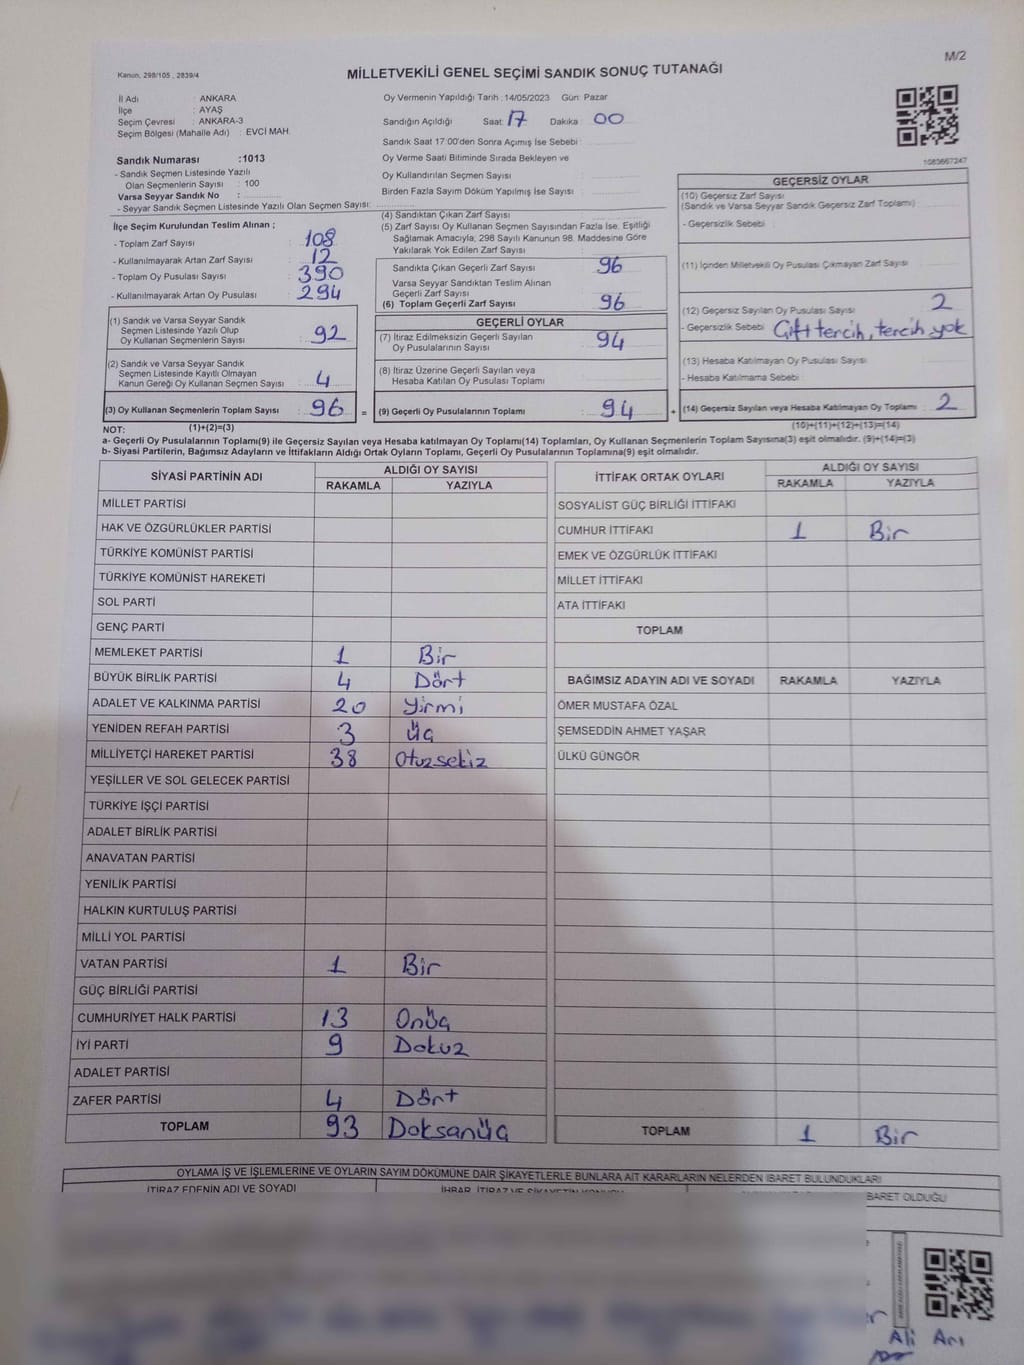 M/2
Kanun, 298/105 , 2839/4
MİLLETVEKİLİ GENEL SEÇİMİ SANDIK SONUÇ TUTANAĞI
İl Adı : ANKARA
İlçe : AYAŞ
Seçim Çevresi : ANKARA-3
Seçim Bölgesi (Mahalle Adı) : EVCİ MAH.
Sandık Numarası :1013
- Sandık Seçmen Listesinde Yazılı
Olan Seçmenlerin Sayısı : 100
Varsa Seyyar Sandık No :
- Seyyar Sandık Seçmen Listesinde Yazılı Olan Seçmen Sayısı:
İlçe Seçim Kurulundan Teslim Alınan ;
- Toplam Zarf Sayısı : 108
- Kullanılmayarak Artan Zarf Sayısı : 12
- Toplam Oy Pusulası Sayısı : 390
- Kullanılmayarak Artan Oy Pusulası : 294
(1) Sandık ve Varsa Seyyar Sandık
Seçmen Listesinde Yazılı Olup
Oy Kullanan Seçmenlerin Sayısı : 92
(2) Sandık ve Varsa Seyyar Sandık
Seçmen Listesinde Kayıtlı Olmayan
Kanun Gereği Oy Kullanan Seçmen Sayısı : 4
(3) Oy Kullanan Seçmenlerin Toplam Sayısı : 96 =
Oy Vermenin Yapıldığı Tarih :14/05/2023 Gün: Pazar
Sandığın Açıldığı Saat: 17 Dakika: 00
Sandık Saat 17:00'den Sonra Açımış İse Sebebi :
Oy Verme Saati Bitiminde Sırada Bekleyen ve
Oy Kullandırılan Seçmen Sayısı :
Birden Fazla Sayım Döküm Yapılmış İse Sayısı :
(4) Sandıktan Çıkan Zarf Sayısı :
(5) Zarf Sayısı Oy Kullanan Seçmen Sayısından Fazla İse, Eşitliği
Sağlamak Amacıyla, 298 Sayılı Kanunun 98. Maddesine Göre
Yakılarak Yok Edilen Zarf Sayısı :
Sandıkta Çıkan Geçerli Zarf Sayısı : 96
Varsa Seyyar Sandıktan Teslim Alınan
Geçerli Zarf Sayısı :
(6) Toplam Geçerli Zarf Sayısı : 96
GEÇERLİ OYLAR
(7) İtiraz Edilmeksizin Geçerli Sayılan
Oy Pusulalarının Sayısı : 94
(8) İtiraz Üzerine Geçerli Sayılan veya
Hesaba Katılan Oy Pusulası Toplamı :
(9) Geçerli Oy Pusulalarının Toplamı : 94 +
1083667247
GEÇERSİZ OYLAR
(10) Geçersiz Zarf Sayısı
(Sandık ve Varsa Seyyar Sandık Geçersiz Zarf Toplamı)
- Geçersizlik Sebebi :
(11) İçinden Milletvekili Oy Pusulası Çıkmayan Zarf Sayısı :
(12) Geçersiz Sayılan Oy Pusulası Sayısı : 2
- Geçersizlik Sebebi : Çift tercih, tercih yok
(13) Hesaba Katılmayan Oy Pusulası Sayısı :
- Hesaba Katılmama Sebebi :
(14) Geçersiz Sayılan veya Hesaba Katılmayan Oy Toplamı : 2
NOT: (1)+(2)=(3) (10)+(11)+(12)+(13)=(14)
a- Geçerli Oy Pusulalarının Toplamı(9) ile Geçersiz Sayılan veya Hesaba katılmayan Oy Toplamı(14) Toplamları, Oy Kullanan Seçmenlerin Toplam Sayısına(3) eşit olmalıdır. (9)+(14)=(3)
b- Siyasi Partilerin, Bağımsız Adayların ve İttifakların Aldığı Ortak Oyların Toplamı, Geçerli Oy Pusulalarının Toplamına(9) eşit olmalıdır.
SİYASİ PARTİNİN ADI ALDIĞI OY SAYISI
RAKAMLA YAZIYLA
MİLLET PARTİSİ
HAK VE ÖZGÜRLÜKLER PARTİSİ
TÜRKİYE KOMÜNİST PARTİSİ
TÜRKİYE KOMÜNİST HAREKETİ
SOL PARTİ
GENÇ PARTİ
MEMLEKET PARTİSİ 1 Bir
BÜYÜK BİRLİK PARTİSİ 4 Dört
ADALET VE KALKINMA PARTİSİ 20 Yirmi
YENİDEN REFAH PARTİSİ 3 Üç
MİLLİYETÇİ HAREKET PARTİSİ 38 Otuzsekiz
YEŞİLLER VE SOL GELECEK PARTİSİ
TÜRKİYE İŞÇİ PARTİSİ
ADALET BİRLİK PARTİSİ
ANAVATAN PARTİSİ
YENİLİK PARTİSİ
HALKIN KURTULUŞ PARTİSİ
MİLLİ YOL PARTİSİ
VATAN PARTİSİ 1 Bir
GÜÇ BİRLİĞİ PARTİSİ
CUMHURİYET HALK PARTİSİ 13 Onüç
İYİ PARTİ 9 Dokuz
ADALET PARTİSİ
ZAFER PARTİSİ 4 Dört
TOPLAM 93 Doksanüç
İTTİFAK ORTAK OYLARI ALDIĞI OY SAYISI
RAKAMLA YAZIYLA
SOSYALİST GÜÇ BİRLİĞİ İTTİFAKI
CUMHUR İTTİFAKI 1 Bir
EMEK VE ÖZGÜRLÜK İTTİFAKI
MİLLET İTTİFAKI
ATA İTTİFAKI
TOPLAM
BAĞIMSIZ ADAYIN ADI VE SOYADI RAKAMLA YAZIYLA
ÖMER MUSTAFA ÖZAL
ŞEMSEDDİN AHMET YAŞAR
ÜLKÜ GÜNGÖR
TOPLAM 1 Bir
OYLAMA İŞ VE İŞLEMLERİNE VE OYLARIN SAYIM DÖKÜMÜNE DAİR ŞİKAYETLERLE BUNLARA AİT KARARLARIN NELERDEN İBARET BULUNDUKLARI
İTİRAZ EDENİN ADI VE SOYADI İHBAR, İTİRAZ VE ŞİKAYETİN KONUSU İBARET OLDUĞU
Ali Arı